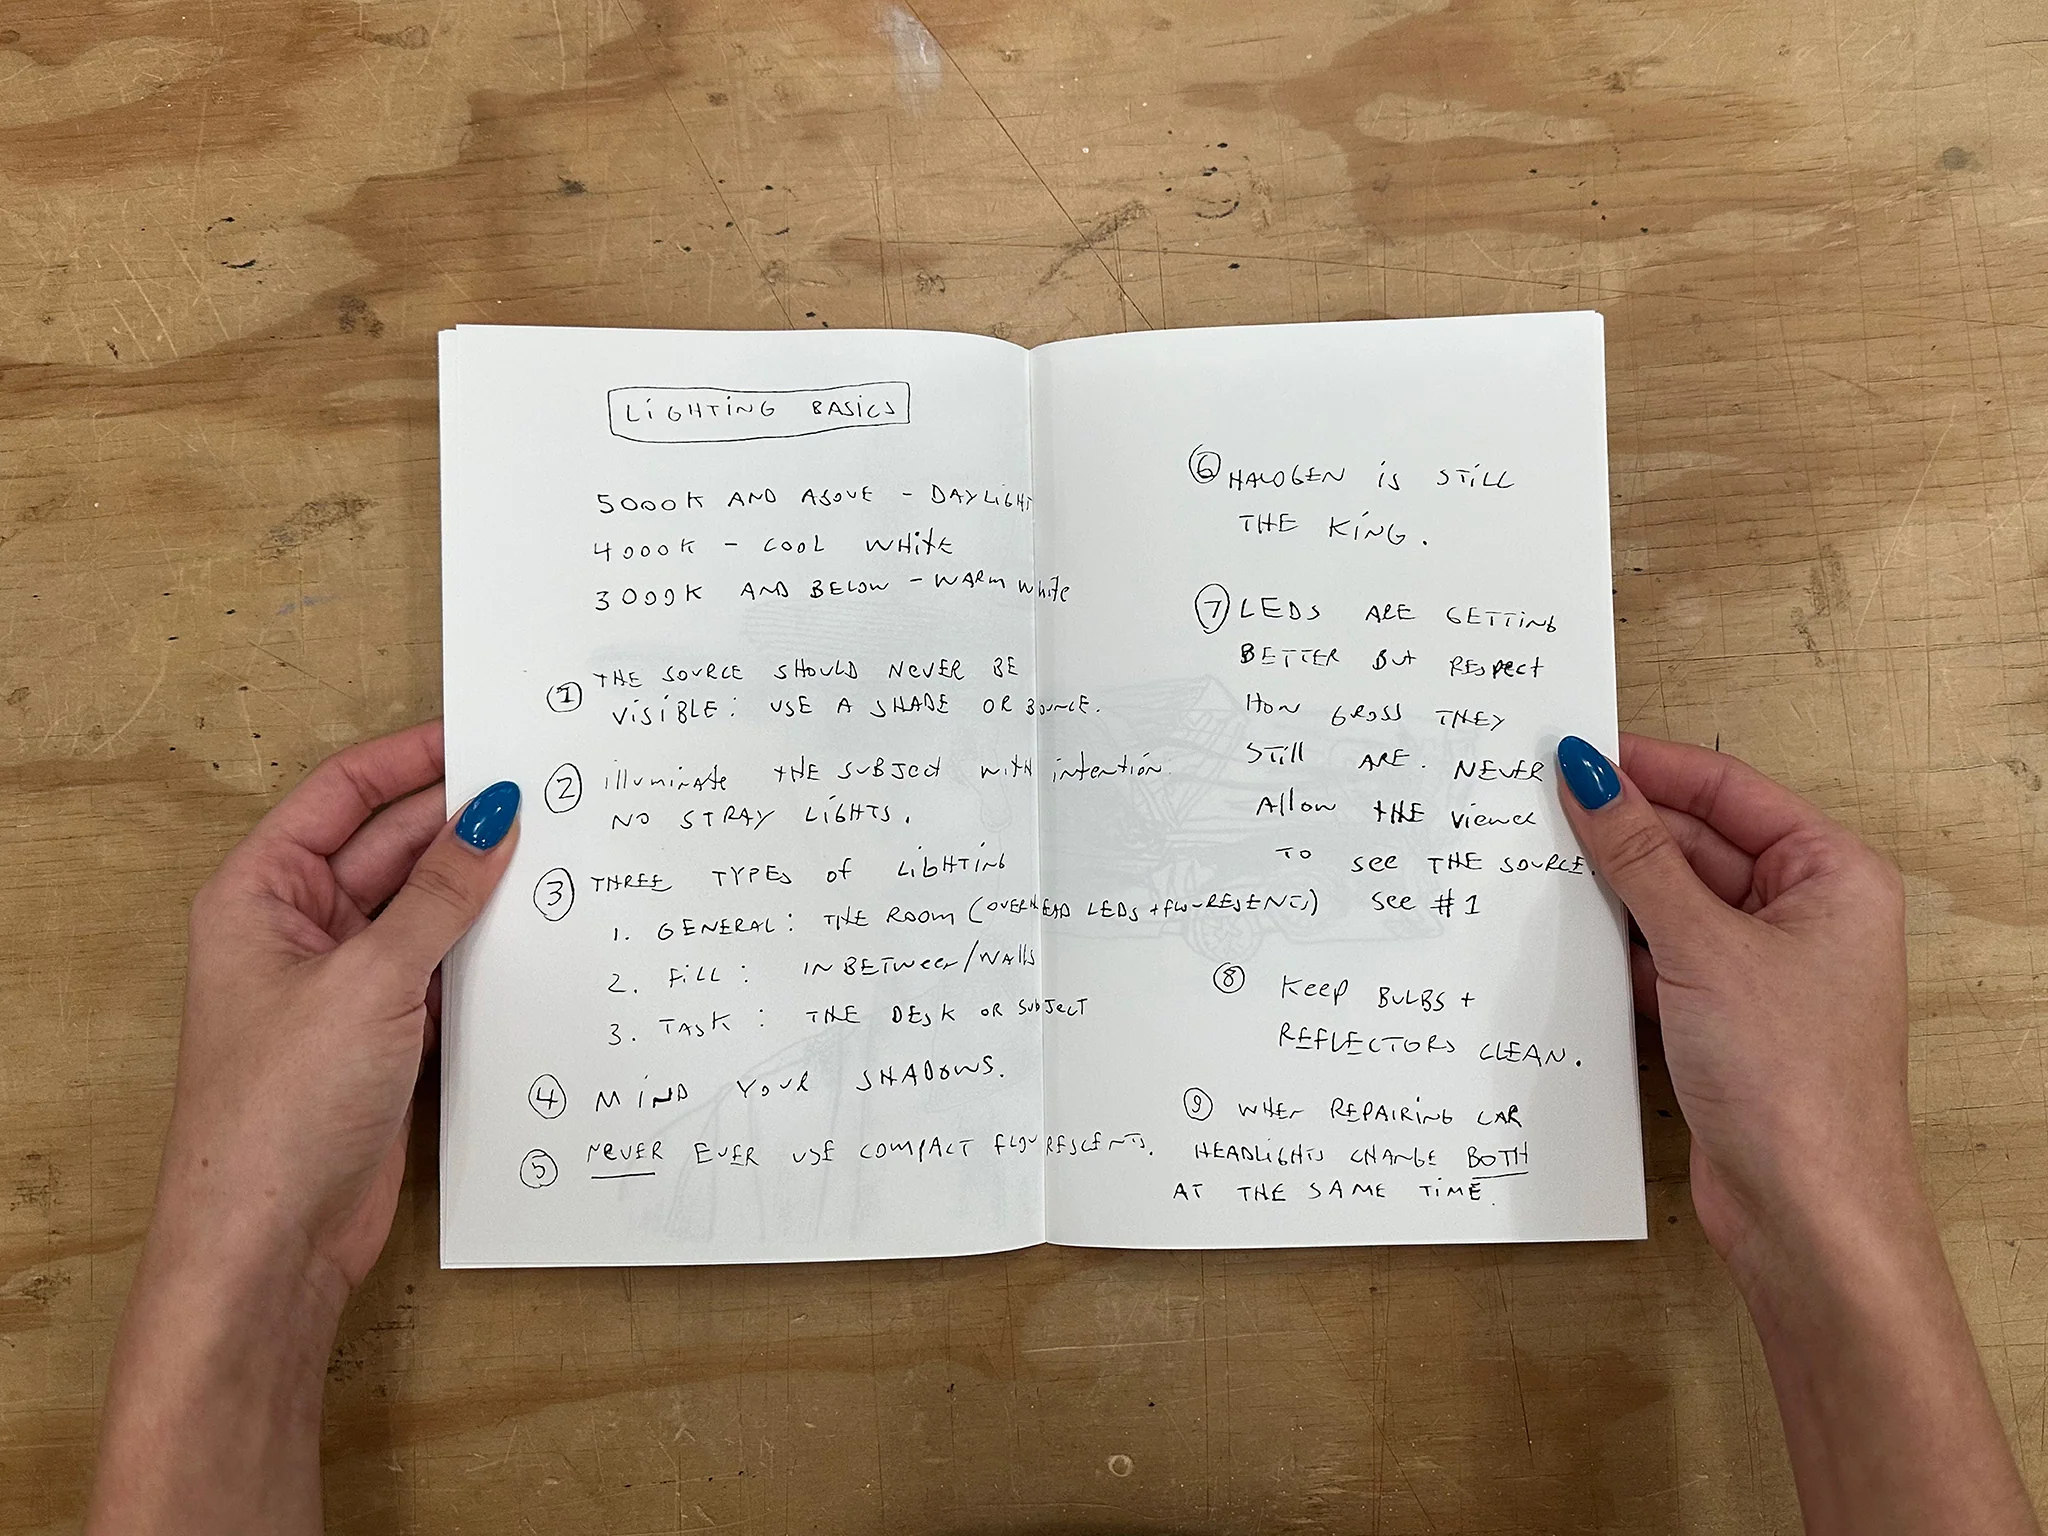 LiGHTiNG BASiCS
5000K AND ABOVE - DAYLiGHT
4000K - COOL WHiTE
3000K AND BELOW - WARM White
① THE SOURCE SHOULD NEVER BE
ViSiBLE: USE A SHADE OR BOUNCE.
② illuminate THE SUBJect with intention.
NO STRAY LiGHTS.
③ THREE TYPES of LiGHTiNG
1. GENERAL: THE ROOM (OVERHEAD LEDS + FLOURESENTS)
2. FiLL: IN BETWEEN/WALLS
3. TASK: THE DESK OR SUBJECT
④ MiND YOUR SHADOWS.
⑤ NEVER EVER USE COMPACT FLOURESCENTS.
⑥ HALOGEN iS STiLL
THE KiNG.
⑦ LEDS ARE GETTiNG
BETTER BUT RESPect
HOW GROSS THEY
STill ARE. NEVER
Allow THE Viewer
TO see THE SOURCE.
See #1
⑧ Keep BULBS +
REFLECTORS CLEAN.
⑨ WHEN REPAiRiNG CAR
HEADLiGHTS CHANGE BOTH
AT THE SAME TiME.